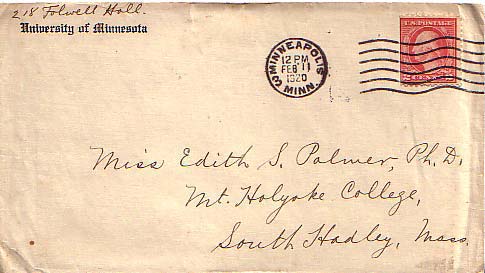 218 Folwell Hall.
University of Minnesota
MINNEAPOLIS
12 PM
FEB 11
1920
MINN.
3
U.S. POSTAGE
Miss Edith S. Palmer, Ph. D.
Mt. Holyoke College,
South Hadley, Mass.